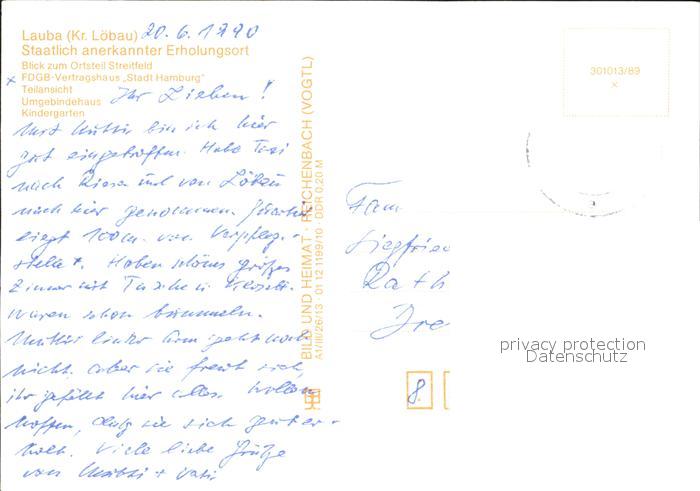 Lauba (Kr. Löbau) 20.6.1990
Staatlich anerkannter Erholungsort
Blick zum Ortsteil Streitfeld
x FDGB-Vertragshaus „Stadt Hamburg"
Teilansicht
Umgebindehaus
Kindergarten
Ihr Lieben!
Mit Mutti bin ich hier
gut eingetroffen. Habe Taxi
nach und von Löbau
nach hier genommen.
liegt 100 m von Verpfleg.-
stelle x. Haben schönes großes
Zimmer mit Dusche u.
Waren schon bummeln.
Muttis linker Arm geht noch
nicht. Aber sie freut sich,
ihr gefällt hier alles. Wollen
hoffen, daß sie sich gut er-
holt. Viele liebe Grüße
von Mutti + Vati
BILD UND HEIMAT · REICHENBACH (VOGTL)
A1/III/26/13 · 01 12 1199/10 · DDR 0,20 M
301013/89
x
Fam
Siegfrie
Rath
Dre
8
privacy protection
Datenschutz